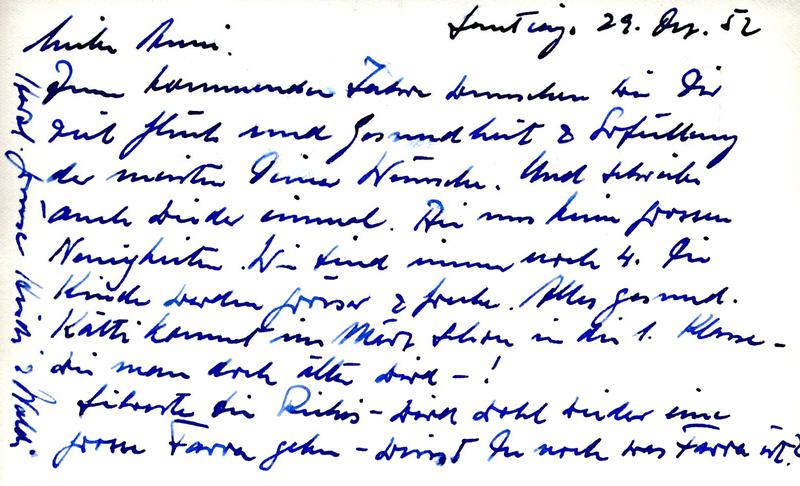 Santiag. 29. Dez. 52
Lieber Anni.
Zum kommenden Jahre wünschen wir Dir
viel Glück und Gesundheit & Erfüllung
der meisten Deiner Wünsche. Und schreibe
auch wieder einmal. Bei uns keine grossen
Neuigkeiten. Wir sind immer noch 4. Die
Kinder werden grösser & freche. Alles gesund.
Kätti kommt im März schon in die 1. Klasse -
wie man doch älter wird - !
Silvester die - wird wohl wieder eine
grosse Farra geben - weisst Du noch was Farra ist?
Herzl. Grüsse &